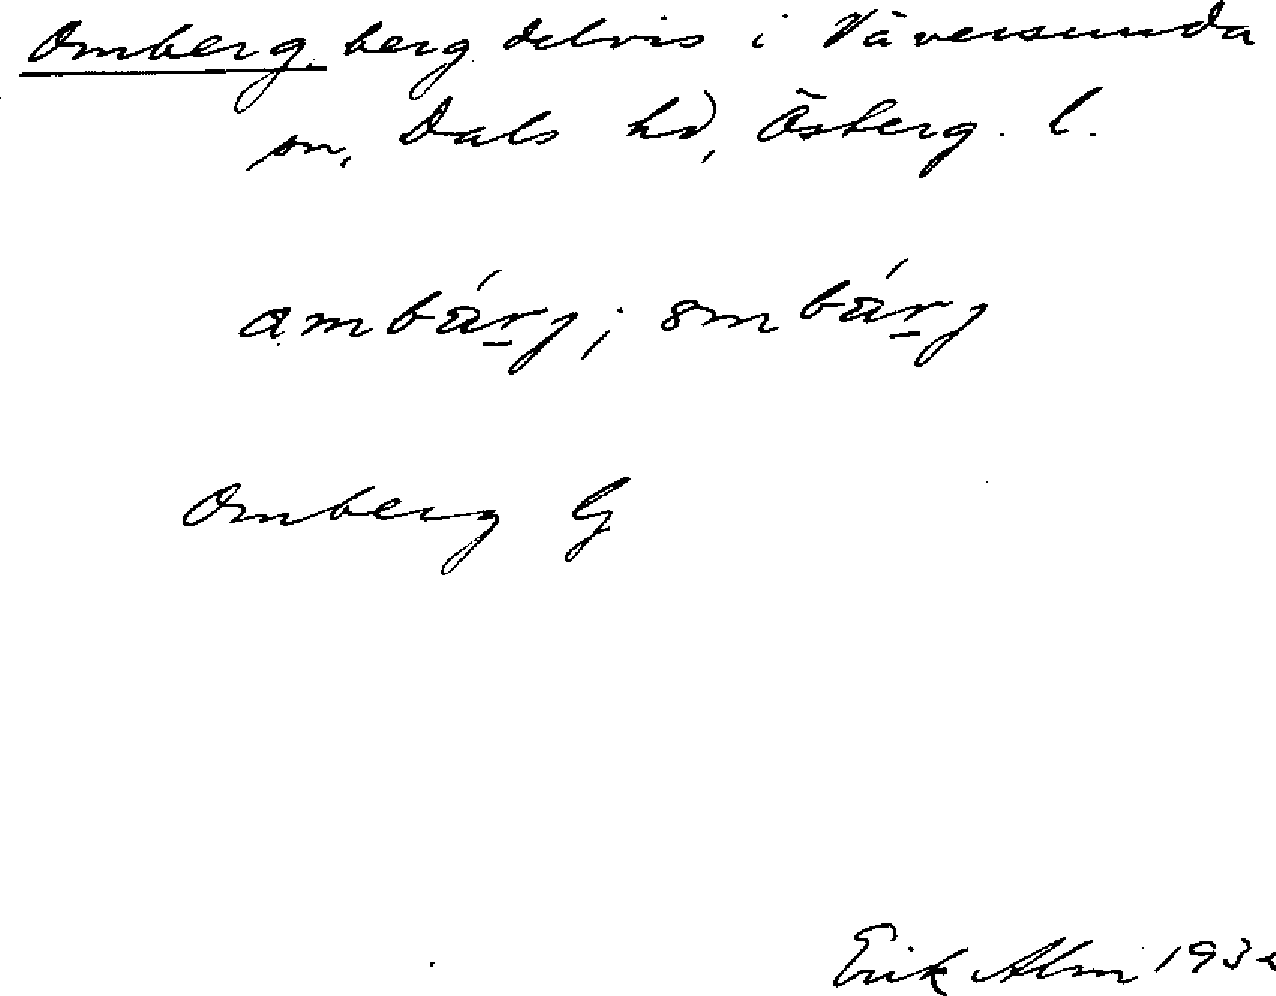 Omberg, berg delvis i Väversunda
sn, Dals hd, Österg. l.
ambärj; ombärj
Omberg G
Erik Alm 1932